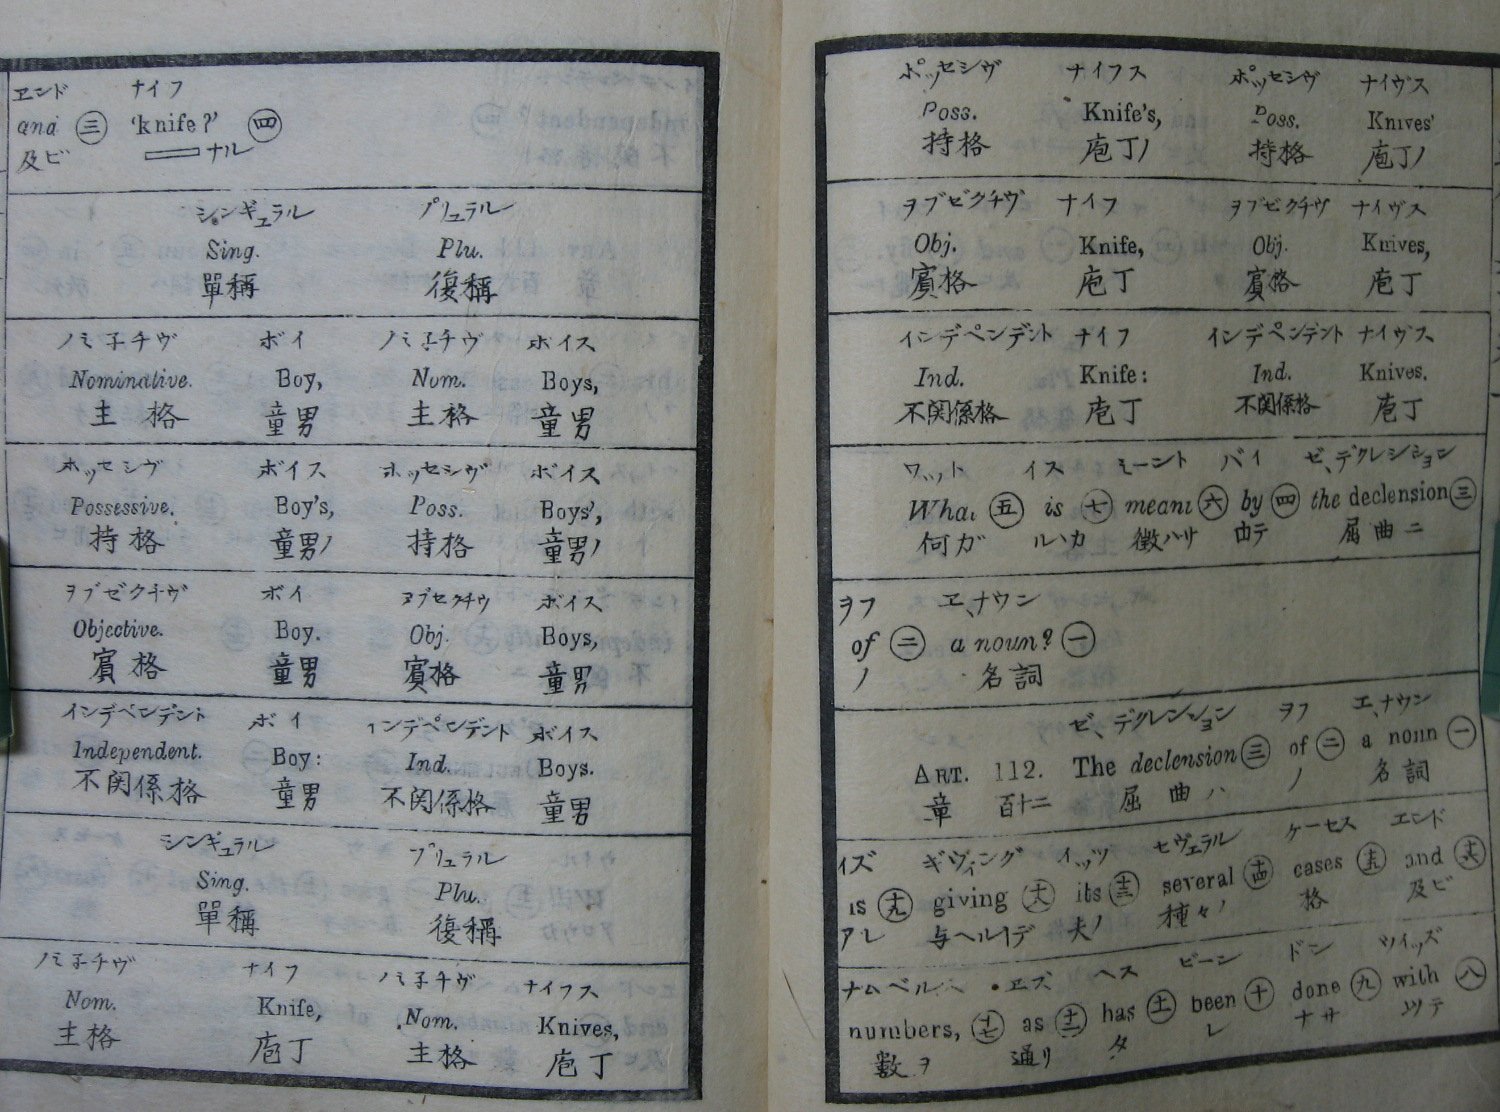 ヱンド ナイフ
and ㊂ 'knife?' ㊃
及ビ ナル
シンギュラル プリュラル
Sing. Plu.
單稱 復稱
ノミ子チヴ ボイ ノミ子チヴ ボイス
Nominative. Boy, Nom. Boys,
主格 童男 主格 童男
ホッセシヴ ボイス ホッセシヴ ボイス
Possessive. Boy's, Poss. Boys',
持格 童男ノ 持格 童男ノ
ヲブゼクチヴ ボイ ヲブセクチヴ ボイス
Objective. Boy. Obj. Boys,
賓格 童男 賓格 童男
インデペンデント ボイ インデペンデント ボイス
Independent. Boy: Ind. Boys.
不関係格 童男 不関係格 童男
シンギュラル プリュラル
Sing. Plu.
單稱 復稱
ノミ子チヴ ナイフ ノミ子チヴ ナイフス
Nom. Knife, Nom. Knives,
主格 庖丁 主格 庖丁
ポッセシヴ ナイフス ポッセシヴ ナイヴス
Poss. Knife's, Poss. Knives'
持格 庖丁ノ 持格 庖丁ノ
ヲブゼクチヴ ナイフ ヲブゼクチヴ ナイヴス
Obj. Knife, Obj. Knives,
賓格 庖丁 賓格 庖丁
インデペンデント ナイフ インデペンデント ナイヴス
Ind. Knife: Ind. Knives.
不関係格 庖丁 不関係格 庖丁
ワット イス ミーント バイ ゼ、デクレンション
What ㊄ is ㊆ meant ㊅ by ㊃ the declension ㊂
何ガ ルヽカ 徴ハサ 由テ 屈曲ニ
ヲフ ヱ、ナウン
of ㊁ a noun? ㊀
ノ 名詞
ゼ、デクレンション ヲフ エ、ナウン
ART. 112. The declension ㊂ of ㊁ a noun ㊀
章 百十二 屈曲ハ ノ 名詞
イズ ギヴィング イッツ セヴェラル ケーセス エンド
is 十九 giving 十八 its 十三 several 十四 cases 十五 and 十六
アレ 与ヘルイデ 夫ノ 種々ノ 格 及ビ
ナムベルス ヱズ ヘス ビーン ドン ウイッズ
numbers, 十七 as 十二 has 十一 been ㊉ done ㊈ with ㊇
数ヲ 通リ タ レ ナサ ツテ